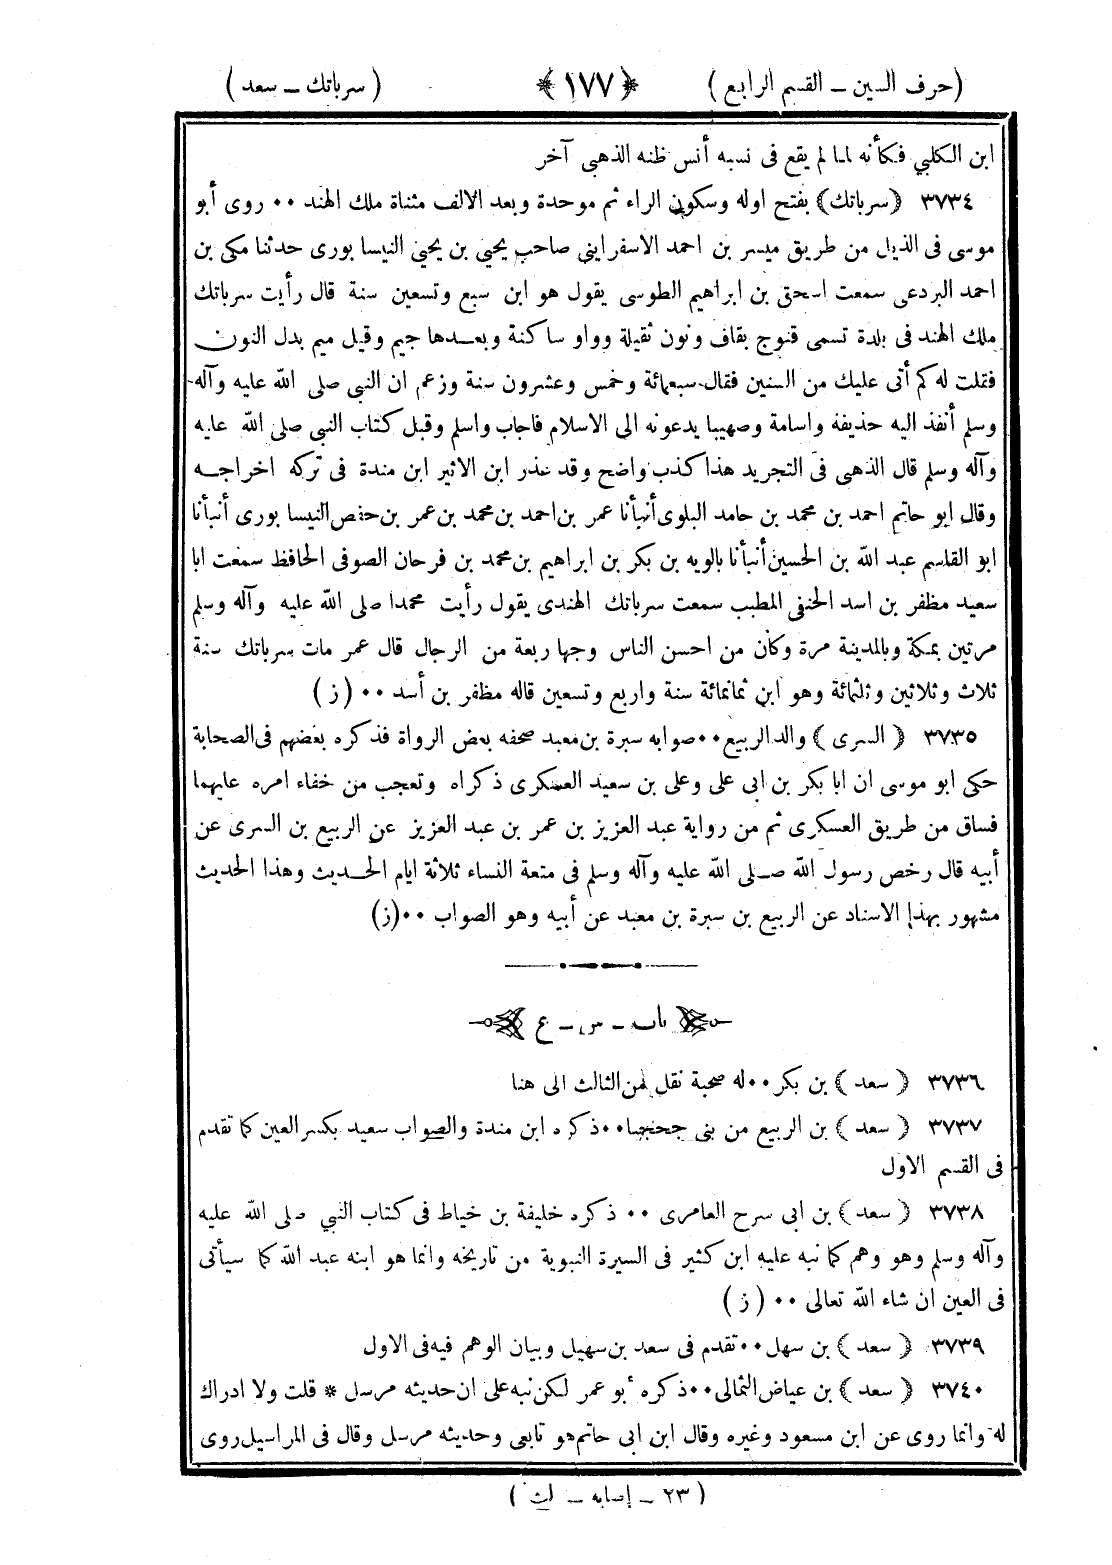 (حرف السين – القسم الرابع) ﴿١٧٧﴾ (سرباتك – سعد)
ابن الكلبي فكأنه لما لم يقع فى نسبه أنس ظنه الذهبى آخر
٣٧٣٤ ﴿سرباتك﴾ بفتح اوله وسكون الراء ثم موحدة وبعد الالف مثناة ملك الهند ٠٠ روى أبو
موسى فى الذيل من طريق ميسر بن احمد الاسفراينى صاحب يحيى بن يحيى النيسا بورى حدثنا مكى بن
احمد البردعى سمعت اسحق بن ابراهيم الطوسى يقول هو ابن سبع وتسعين سنة قال رأيت سرباتك
ملك الهند فى بلدة تسمى قنوج بقاف ونون ثقيلة وواو ساكنة وبعدها جيم وقيل ميم بدل النون
فقلت له كم أتى عليك من السنين فقال سبعمائة وخمس وعشرون سنة وزعم ان النبى صلى الله عليه وآله
وسلم أنفذ اليه حذيفة واسامة وصهيبا يدعونه الى الاسلام فاجاب واسلم وقبل كتاب النبى صلى الله عليه
وآله وسلم قال الذهبى فى التجريد هذا كذب واضح وقد عذر ابن الاثير ابن مندة فى تركه اخراجه
وقال ابو حاتم احمد بن محمد بن حامد البلوى أنبأنا عمر بن احمد بن محمد بن عمر بن حفص النيسا بورى أنبأنا
ابو القاسم عبد الله بن الحسين أنبأنا بالويه بن بكر بن ابراهيم بن محمد بن فرحان الصوفى الحافظ سمعت ابا
سعيد مظفر بن اسد الحنفى المطبب سمعت سرباتك الهندى يقول رأيت محمدا صلى الله عليه وآله وسلم
مرتين بمكة وبالمدينة مرة وكان من احسن الناس وجها ربعة من الرجال قال عمر مات سرباتك سنة
ثلاث وثلاثين وثلثمائة وهو ابن ثمانمائة سنة واربع وتسعين قاله مظفر بن أسد ٠٠ (ز)
٣٧٣٥ ﴿السرى﴾ والد الربيع ٠٠ صوابه سبرة بن معبد صحفه بعض الرواة فذكره بعضهم فى الصحابة
حكى ابو موسى ان ابا بكر بن ابى على وعلى بن سعيد العسكرى ذكراه وتعجب من خفاء امره عليهما
فساق من طريق العسكرى ثم من رواية عبد العزيز بن عمر بن عبد العزيز عن الربيع بن السرى عن
أبيه قال رخص رسول الله صلى الله عليه وآله وسلم فى متعة النساء ثلاثة ايام الحديث وهذا الحديث
مشهور بهذا الاسناد عن الربيع بن سبرة بن معبد عن أبيه وهو الصواب ٠٠ (ز)
باب – س – ع
٣٧٣٦ ﴿سعد﴾ بن بكر ٠٠ له صحبة نقل من الثالث الى هنا
٣٧٣٧ ﴿سعد﴾ بن الربيع من بنى جحجبا ٠٠ ذكره ابن مندة والصواب سعيد بكسر العين كما تقدم
فى القسم الاول
٣٧٣٨ ﴿سعد﴾ بن ابى سرح العامرى ٠٠ ذكره خليفة بن خياط فى كتاب النبي صلى الله عليه
وآله وسلم وهو وهم كما نبه عليه ابن كثير فى السيرة النبوية من تاريخه وانما هو ابنه عبد الله كما سيأتى
فى العين ان شاء الله تعالى ٠٠ (ز)
٣٧٣٩ ﴿سعد﴾ بن سهل ٠٠ تقدم فى سعد بن سهيل وبيان الوهم فيه فى الاول
٣٧٤٠ ﴿سعد﴾ بن عياض الثمالى ٠٠ ذكره أبو عمر لكن نبه على ان حديثه مرسل * قلت ولا ادراك
له وانما روى عن ابن مسعود وغيره وقال ابن ابى حاتم هو تابعى وحديثه مرسل وقال فى المراسيل روى
(٢٣ – إصابه – لث)